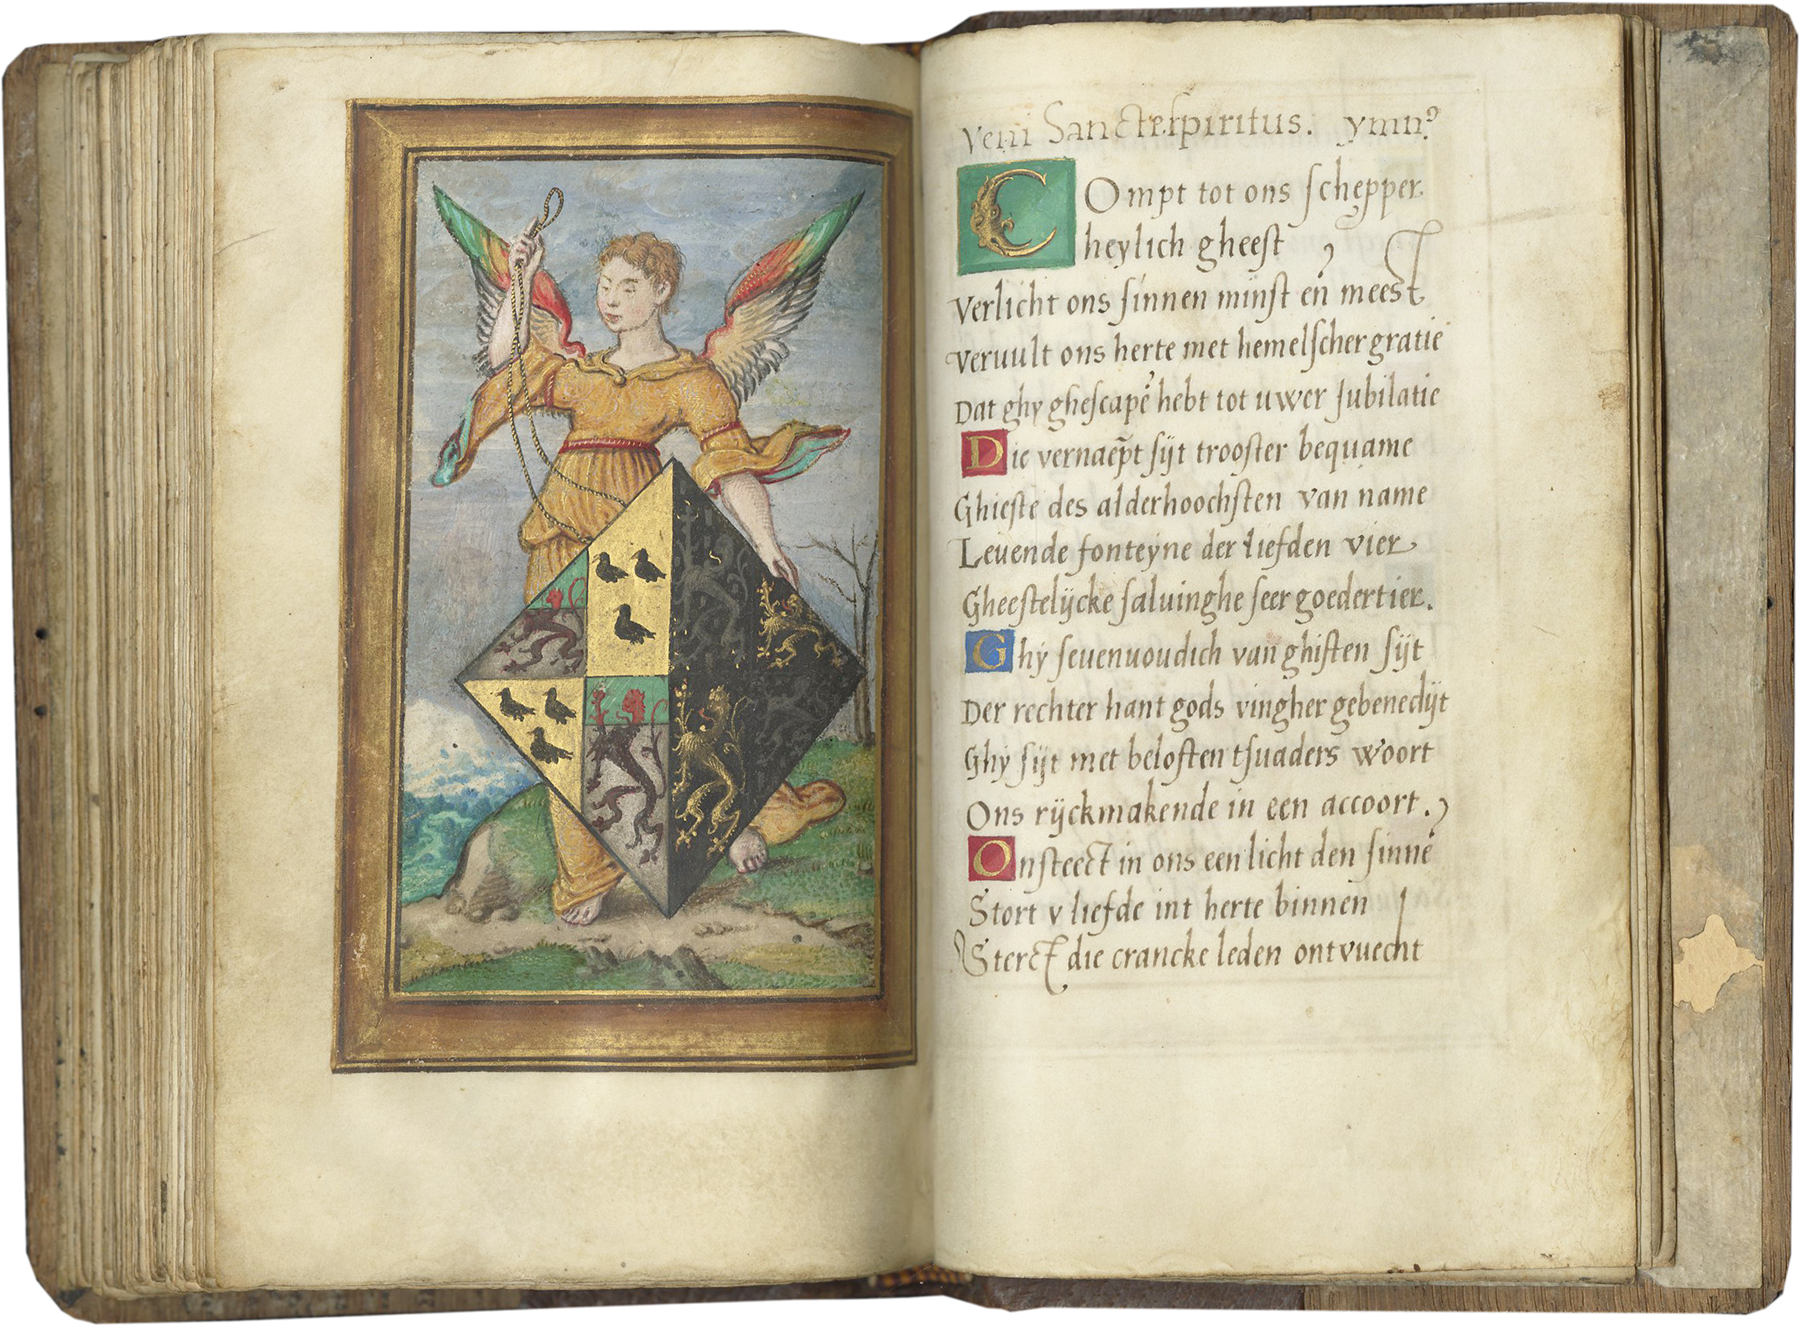 Veni Sancte spiritus. ymn⁹
COmpt tot ons schepper
heylich gheest
Verlicht ons sinnen minst en̄ meest
Veruult ons herte met hemelscher gratie
Dat ghy ghescapē hebt tot uwer Jubilatie
Die vernaēpt sijt trooster bequame
Ghieste des alderhoochsten van name
Leuende fonteyne der liefden vier
Gheestelijcke saluinghe seer goedertier.
Ghy seuenuoudich van ghiften sijt
Der rechter hant gods vingher gebenedijt
Ghy sijt met beloften tsuaders woort
Ons rijckmakende in een accoort.
Onsteect in ons een licht den sinnē
Stort v liefde int herte binnen
Sterct die crancke leden ontvuecht